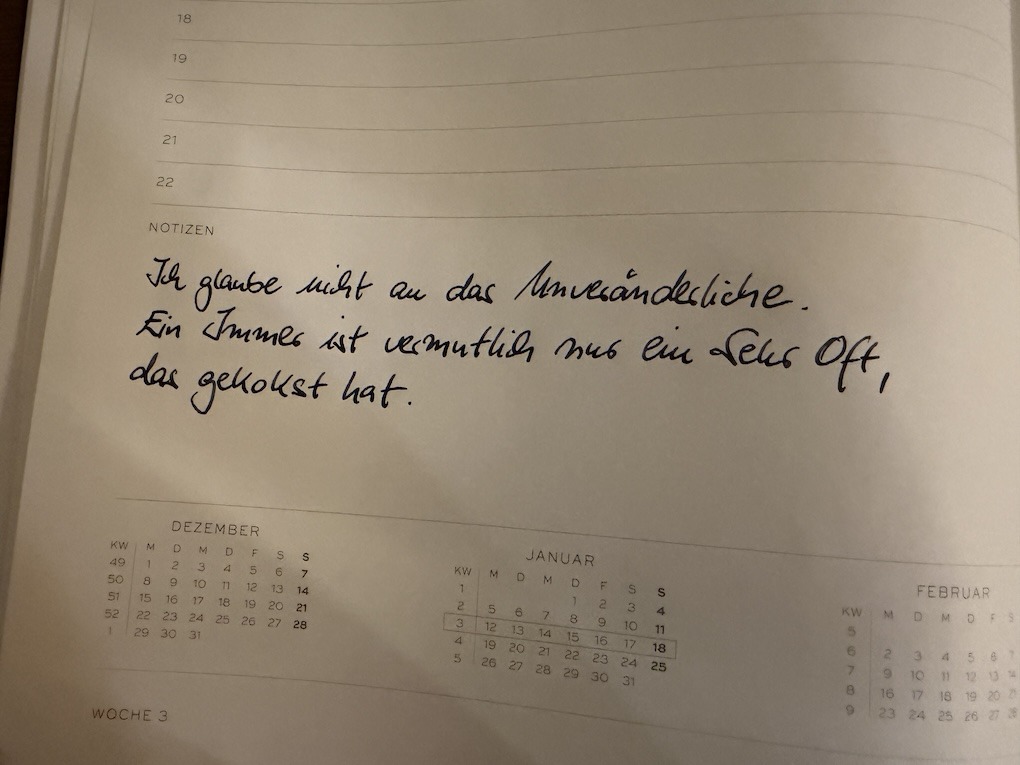 18
19
20
21
22
NOTIZEN
Ich glaube nicht an das Unveränderliche.
Ein Immer ist vermutlich nur ein Sehr Oft,
das gekokst hat.
DEZEMBER
KW M D M D F S S
49 1 2 3 4 5 6 7
50 8 9 10 11 12 13 14
51 15 16 17 18 19 20 21
52 22 23 24 25 26 27 28
1 29 30 31
JANUAR
KW M D M D F S S
1 1 2 3 4
2 5 6 7 8 9 10 11
3 12 13 14 15 16 17 18
4 19 20 21 22 23 24 25
5 26 27 28 29 30 31
FEBRUAR
KW M D M D F S
5
6 2 3 4 5 6 7
7 9 10 11 12 13 14
8 16 17 18 19 20
9 23 24 25 26 27 28
WOCHE 3